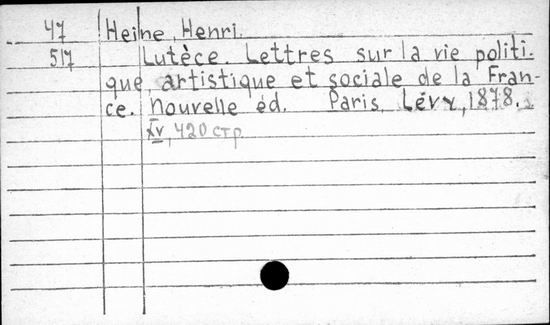 47 Heine, Henri.
517 Lutèce. Lettres sur la vie politi-
que, artistique et sociale de la Fran-
ce. Nouvelle éd. Paris, Lévy, 1878.
XV, 420 стр.